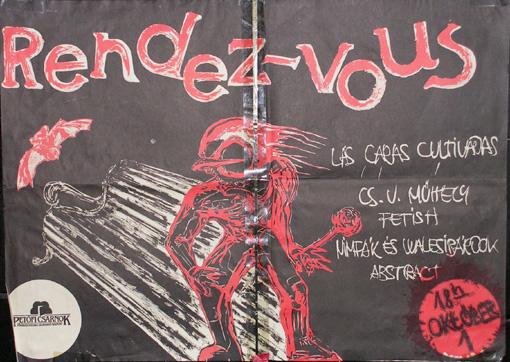 Rendez-vous
LAS CARAS CULTIVADAS
CS.V. MŰHELY
FETISH
NIMFÁK ÉS WALESI BÁRDOK
ABSTRACT
18h
OKTÓBER
1
PETŐFI CSARNOK